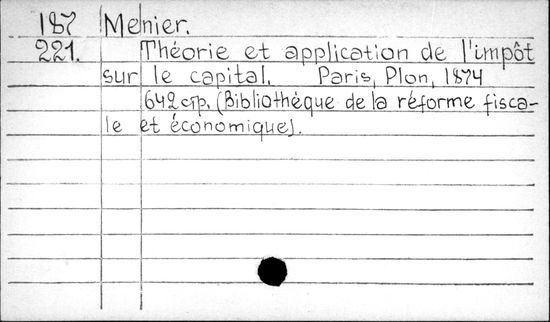 187 Menier.
221. Théorie et application de l'impôt
sur le capital. Paris, Plon, 1874
642 стр. (Bibliothèque de la réforme fisca-
le et économique).